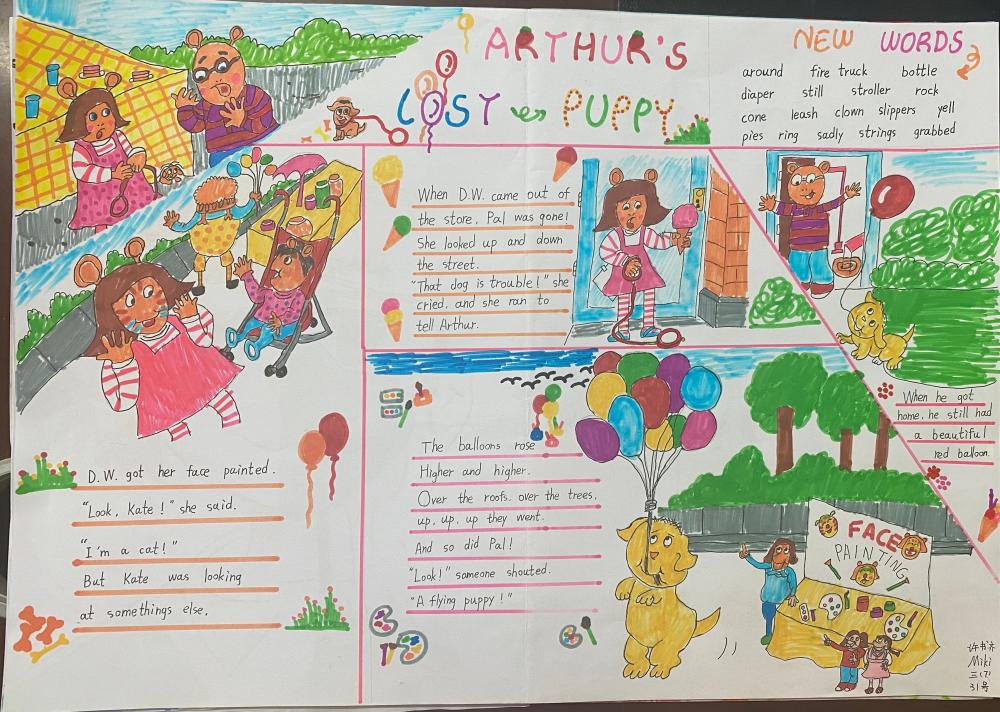 ARTHUR'S
LOST PUPPY
NEW WORDS
around fire truck bottle
diaper still stroller rock
cone leash clown slippers yell
pies ring sadly strings grabbed
When D.W. came out of
the store, Pal was gone!
She looked up and down
the street.
"That dog is trouble!" she
cried, and she ran to
tell Arthur.
When he got
home, he still had
a beautiful
red balloon.
D.W. got her face painted.
"Look, Kate!" she said.
"I'm a cat!"
But Kate was looking
at somethings else.
The balloons rose
Higher and higher.
Over the roofs, over the trees,
up, up, up they went.
And so did Pal!
"Look!" someone shouted.
"A flying puppy!"
FACE
PAINTING
Miki
三(7)
31号